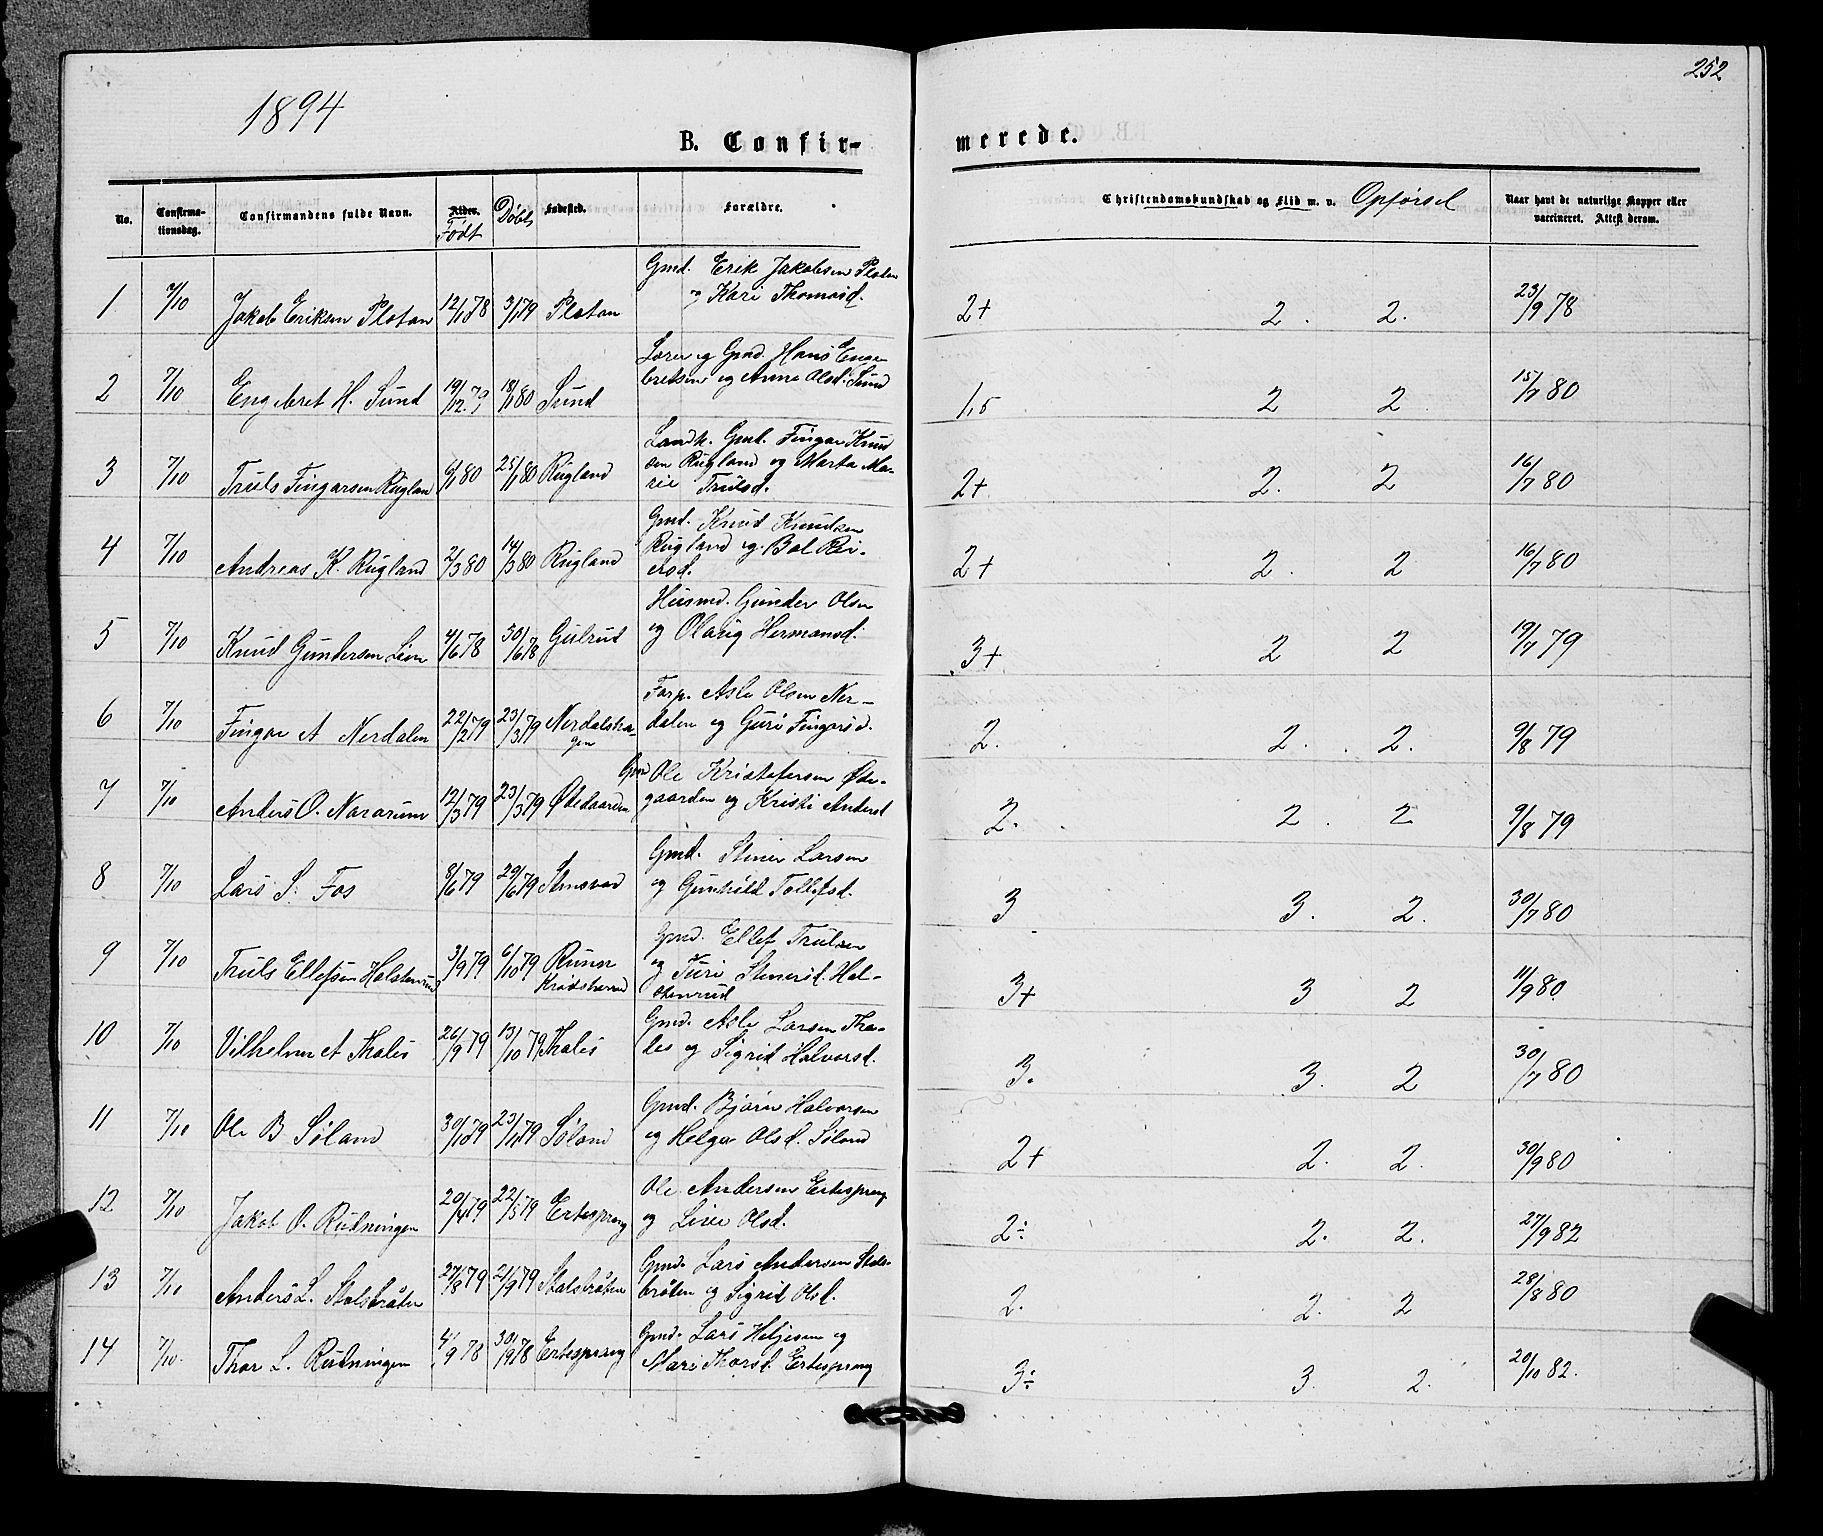 252
1894
B. Confir-
merede.
No. Confirma-tionsdag. Confirmandens fulde Navn. Alder. Født Døbt Fødested. Forældre. Christendomskundskab og Flid m. v. Opførsel Naar havt de naturlige Kopper eller vaccineret. Attest derom.
Gmd. Erik Jakobsen Plotan
1 7/10 Jakob Eriksen Plotan 12/178 3/179 Plotan og Kari Thomasd. 2+ 2. 2. 23/9 78
Lærer og Gmd. Hans Enge-
2 7/10 Engebret H. Sund 19/12 79 18/180 Sund bretsen og Anne Olsd. Sund 1,5 2 2 15/7 80
Landh. Gmd. Fingar Knud
3 7/10 Truls Fingarsen Rugland 6/180 25/180 Rugland sen Rugland og Marta Ma-
rie Trulsd. 2+ 2. 2 16/7 80
Gmd. Knud Knudsen
4 7/10 Andreas K. Rugland 2/3 80 14/3 80 Rugland Rugland og Bol Rei-
ersd. 2+ 2. 2 16/7 80
Husmd. Gunder Olsen
5 7/10 Knud Gundersen Lien 4/6 78 30/6 78 Gulrud og Olaug Hermansd. 3+ 2 2 19/7 79
Forp. Asle Olsen Ner-
6 7/10 Fingar A Nerdalen 22/2 79 23/3 79 Nerdalsha-
gen dalen og Guri Fingarsd. 2. 2. 2. 9/8 79
Gmd Ole Kristofersen Øde-
7 7/10 Anders O. Nararum 12/3 79 23/3 79 Ødegaarden gaarden og Kristi Andersd 2. 2. 2 9/8 79
Gmd. Stener Larsen
8 7/10 Lars S. Fos 8/6 79 29/6 79 og Gunhild Tollefsd. 3 3. 2. 30/7 80
Gmd. Ellef Trulsen
9 7/10 Truls Ellefsen Halstenrud 3/9 79 6/10 79 og Turi Stenersd. Hal-
stenrud 3+ 3 2 11/9 80
Gmd. Asle Larsen Tha-
10 7/10 Vilhelm A Thales 26/9 79 13/10 79 Thales les og Sigrid Halvorsd. 3. 3. 2 30/7 80
Gmd. Bjørn Halvorsen
11 7/10 Ole B Søland 30/10 79 23/11 79 Søland og Helga Olsd. Søland 2+ 2. 2. 30/9 80
Ole Andersen Ertesprang
12 7/10 Jakob O. Rudningen 20/4 79 22/5 79 Ertesprang og Lise Olsd. 2÷ 2. 2. 27/9 82
Gmd. Lars Andersen Skals-
13 7/10 Anders L. Skalsbråten 27/8 79 21/9 79 Skalsbråten bråten og Sigrid Olsd. 2. 2. 2 28/8 80
Gmd. Lars Heljesen og
14 7/10. Thor L. Rudningen 4/9 78 30/9 78 Ertesprang Mari Thorsd. Ertesprang 3÷ 3. 2. 20/10 82.